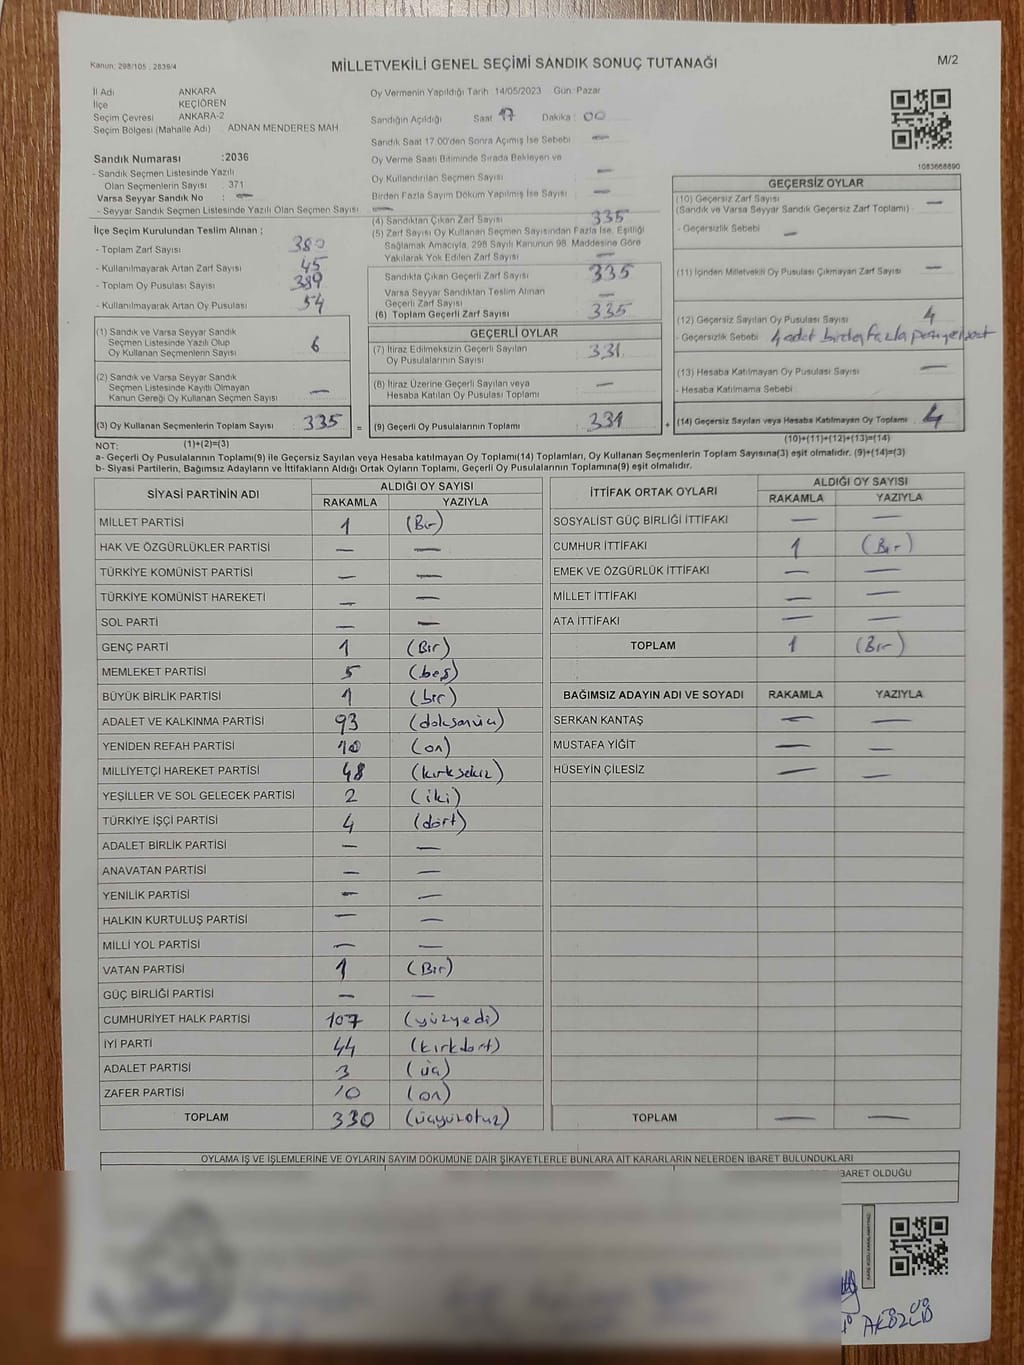 Kanun: 298/105 , 2839/4
MİLLETVEKİLİ GENEL SEÇİMİ SANDIK SONUÇ TUTANAĞI
M/2
İl Adı ANKARA
İlçe KEÇİÖREN
Seçim Çevresi ANKARA-2
Seçim Bölgesi (Mahalle Adı) ADNAN MENDERES MAH
Sandık Numarası :2036
- Sandık Seçmen Listesinde Yazılı
Olan Seçmenlerin Sayısı : 371
Varsa Seyyar Sandık No : —
- Seyyar Sandık Seçmen Listesinde Yazılı Olan Seçmen Sayısı : —
İlçe Seçim Kurulundan Teslim Alınan ;
- Toplam Zarf Sayısı 380
- Kullanılmayarak Artan Zarf Sayısı 45
- Toplam Oy Pusulası Sayısı 389
- Kullanılmayarak Artan Oy Pusulası 54
(1) Sandık ve Varsa Seyyar Sandık
Seçmen Listesinde Yazılı Olup
Oy Kullanan Seçmenlerin Sayısı 6
(2) Sandık ve Varsa Seyyar Sandık
Seçmen Listesinde Kayıtlı Olmayan
Kanun Gereği Oy Kullanan Seçmen Sayısı —
(3) Oy Kullanan Seçmenlerin Toplam Sayısı 335
(1)+(2)=(3)
Oy Vermenin Yapıldığı Tarih 14/05/2023 Gün: Pazar
Sandığın Açıldığı Saat 17 Dakika : 00
Sandık Saat 17.00'den Sonra Açımış İse Sebebi —
Oy Verme Saati Bitiminde Sırada Bekleyen ve
Oy Kullandırılan Seçmen Sayısı —
Birden Fazla Sayım Döküm Yapılmış İse Sayısı —
(4) Sandıktan Çıkan Zarf Sayısı 335
(5) Zarf Sayısı Oy Kullanan Seçmen Sayısından Fazla İse, Eşitliği
Sağlamak Amacıyla, 298 Sayılı Kanunun 98. Maddesine Göre
Yakılarak Yok Edilen Zarf Sayısı —
Sandıkta Çıkan Geçerli Zarf Sayısı 335
Varsa Seyyar Sandıktan Teslim Alınan
Geçerli Zarf Sayısı —
(6) Toplam Geçerli Zarf Sayısı 335
GEÇERLİ OYLAR
(7) İtiraz Edilmeksizin Geçerli Sayılan
Oy Pusulalarının Sayısı 331
(8) İtiraz Üzerine Geçerli Sayılan veya
Hesaba Katılan Oy Pusulası Toplamı —
= (9) Geçerli Oy Pusulalarının Toplamı 331
1083668890
GEÇERSİZ OYLAR
(10) Geçersiz Zarf Sayısı —
(Sandık ve Varsa Seyyar Sandık Geçersiz Zarf Toplamı)
- Geçersizlik Sebebi —
(11) İçinden Milletvekili Oy Pusulası Çıkmayan Zarf Sayısı —
(12) Geçersiz Sayılan Oy Pusulası Sayısı 4
- Geçersizlik Sebebi 4 adet birden fazla
(13) Hesaba Katılmayan Oy Pusulası Sayısı —
- Hesaba Katılmama Sebebi
+ (14) Geçersiz Sayılan veya Hesaba Katılmayan Oy Toplamı 4
(10)+(11)+(12)+(13)=(14)
NOT:
a- Geçerli Oy Pusulalarının Toplamı(9) ile Geçersiz Sayılan veya Hesaba katılmayan Oy Toplamı(14) Toplamları, Oy Kullanan Seçmenlerin Toplam Sayısına(3) eşit olmalıdır. (9)+(14)=(3)
b- Siyasi Partilerin, Bağımsız Adayların ve İttifakların Aldığı Ortak Oyların Toplamı, Geçerli Oy Pusulalarının Toplamına(9) eşit olmalıdır.
SİYASİ PARTİNİN ADI ALDIĞI OY SAYISI
RAKAMLA YAZIYLA
MİLLET PARTİSİ 1 (Bir)
HAK VE ÖZGÜRLÜKLER PARTİSİ — —
TÜRKİYE KOMÜNİST PARTİSİ — —
TÜRKİYE KOMÜNİST HAREKETİ — —
SOL PARTİ — —
GENÇ PARTİ 1 (Bir)
MEMLEKET PARTİSİ 5 (beş)
BÜYÜK BİRLİK PARTİSİ 1 (bir)
ADALET VE KALKINMA PARTİSİ 93 (doksanüç)
YENİDEN REFAH PARTİSİ 10 (on)
MİLLİYETÇİ HAREKET PARTİSİ 48 (kırksekiz)
YEŞİLLER VE SOL GELECEK PARTİSİ 2 (iki)
TÜRKİYE İŞÇİ PARTİSİ 4 (dört)
ADALET BİRLİK PARTİSİ — —
ANAVATAN PARTİSİ — —
YENİLİK PARTİSİ — —
HALKIN KURTULUŞ PARTİSİ — —
MİLLİ YOL PARTİSİ — —
VATAN PARTİSİ 1 (Bir)
GÜÇ BİRLİĞİ PARTİSİ — —
CUMHURİYET HALK PARTİSİ 107 (yüzyedi)
İYİ PARTİ 44 (kırkdört)
ADALET PARTİSİ 3 (üç)
ZAFER PARTİSİ 10 (on)
TOPLAM 330 (üçyüzotuz)
İTTİFAK ORTAK OYLARI ALDIĞI OY SAYISI
RAKAMLA YAZIYLA
SOSYALİST GÜÇ BİRLİĞİ İTTİFAKI — —
CUMHUR İTTİFAKI 1 (Bir)
EMEK VE ÖZGÜRLÜK İTTİFAKI — —
MİLLET İTTİFAKI — —
ATA İTTİFAKI — —
TOPLAM 1 (Bir)
BAĞIMSIZ ADAYIN ADI VE SOYADI RAKAMLA YAZIYLA
SERKAN KANTAŞ — —
MUSTAFA YİĞİT — —
HÜSEYİN ÇİLESİZ — —
TOPLAM — —
OYLAMA İŞ VE İŞLEMLERİNE VE OYLARIN SAYIM DÖKÜMÜNE DAİR ŞİKAYETLERLE BUNLARA AİT KARARLARIN NELERDEN İBARET BULUNDUKLARI
İBARET OLDUĞU